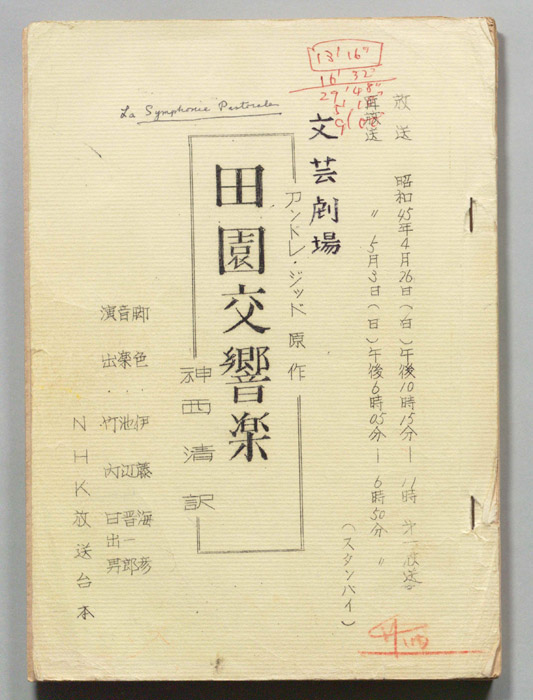 13' 16"
16' 32"
29' 48"
La Symphonie Pastorale
放送 昭和45年4月26日(日)午後10時15分ー11時 㐧一放送
再放送 〃 5月3日(日)午後6時05分ー6時50分 〃
(スタンバイ)
文芸劇場
アンドレ・ジッド 原作
田園交響楽
神西清 訳
脚色・伊藤海彦
音楽・池辺晋一郎
演出・竹内日出男
NHK放送台本